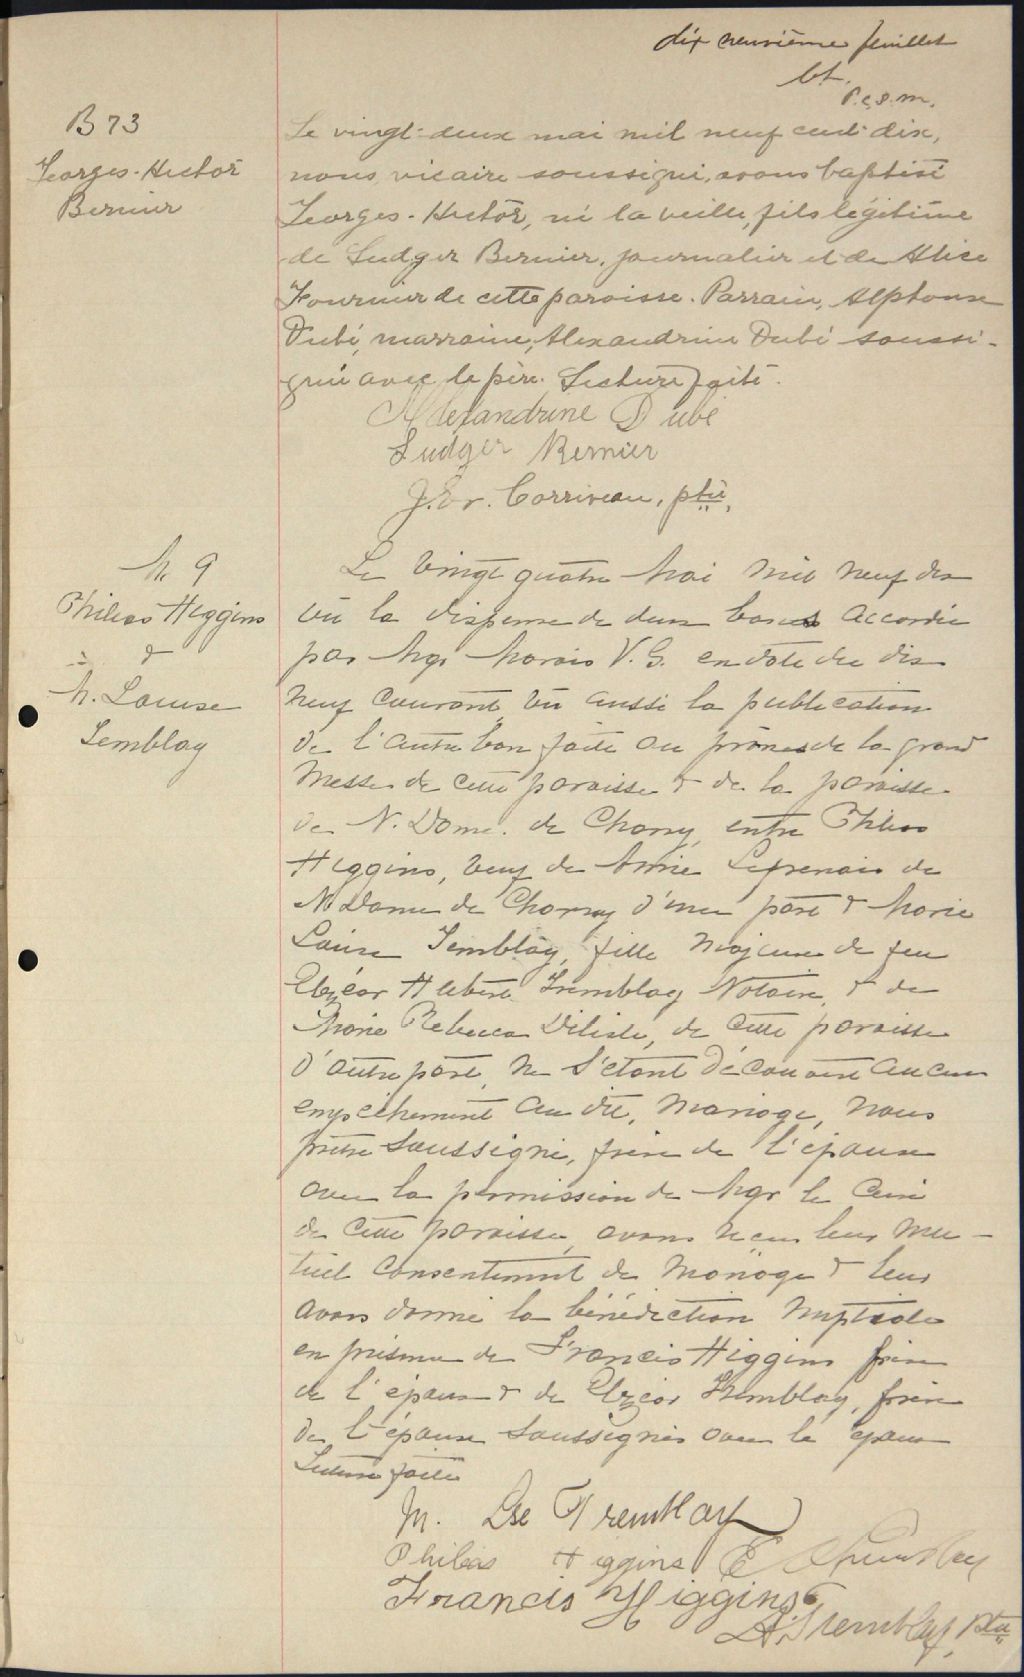 dix neuvième feuillet
bt.
P.C.S.M.
B 73
Georges-Hector
Bernier
Le vingt-deux mai mil neuf cent-dix,
nous vicaire soussigné, avons baptisé
Georges-Hector, né la veille, fils légitime
de Ludger Bernier, journalier et de Alice
Fournier de cette paroisse. Parrain, Alphonse
Dubé, marraine, Alexandrine Dubé soussi-
gnée avec le père. Lecture faite.
Alexandrine Dubé
Ludger Bernier
J. Er. Corriveau, ptre.
M. 9
Phileas Higgins
&
M. Louise
Temblay
Le Vingt quatre Mai Mil Neuf dix
Vu la dispense de deux bans accordée
par Mgr Marois V. G. en date du dix
neuf courant, vu aussi la publication
de l'autre ban faite au prône de la grand
Messe de cette paroisse & de la paroisse
de N. Dame. de Charny, entre Phileas
Higgins, veuf de Annie Lefrenais de
N. Dame de Charny d'une part & Marie
Louise Temblay, fille Majeure de feu
Elzéar Hubert Tremblay Notaire, & de
Marie Rebecca Delisle, de cette paroisse
d'autre part, ne s'étant découvert aucun
empêchement au dit, Mariage, Nous
prêtre Soussigné, frère de l'épouse
avec la permission de Mgr le Curé
de cette paroisse, avons reçu leur Mu-
tuel Consentement de Mariage & leur
avons donné la bénédiction Nuptiale
en présence de Francis Higgins frère
de l'époux & de Elzéar Tremblay, frère
de l'épouse Soussignés avec le époux
Lecture faite
M. Lse Tremblay
Phileas Higgins E Tremblay
Francis Higgins
A. Tremblay, Ptre